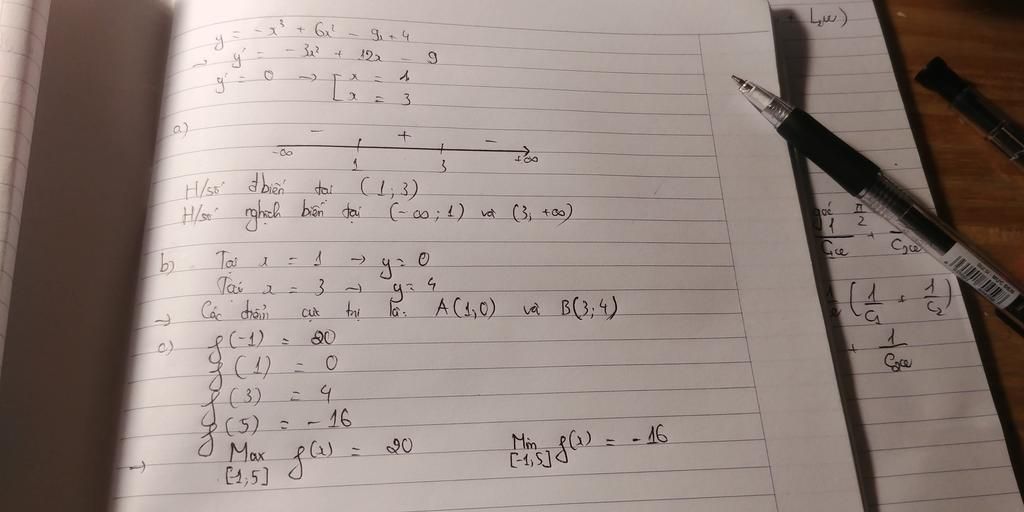 y = -x³ + 6x² - 9x + 4
→ y' = -3x² + 12x - 9
y' = 0 → [ x = 1
x = 3
a)
- + -
-∞ 1 3 +∞
H/số đbiến tại (1; 3)
H/số nghịch biến tại (-∞; 1) và (3, +∞)
b) Tại x = 1 → y = 0
Tại x = 3 → y = 4
→ Các điểm cực trị là: A(1,0) và B(3; 4)
c) f(-1) = 20
f(1) = 0
f(3) = 4
f(5) = -16
→ Max f(x) = 20 Min f(x) = -16
[-1,5] [-1,5]
π/2
1/C₁ω +
(1/C₁ + 1/C₂)
+ 1/C₂ω